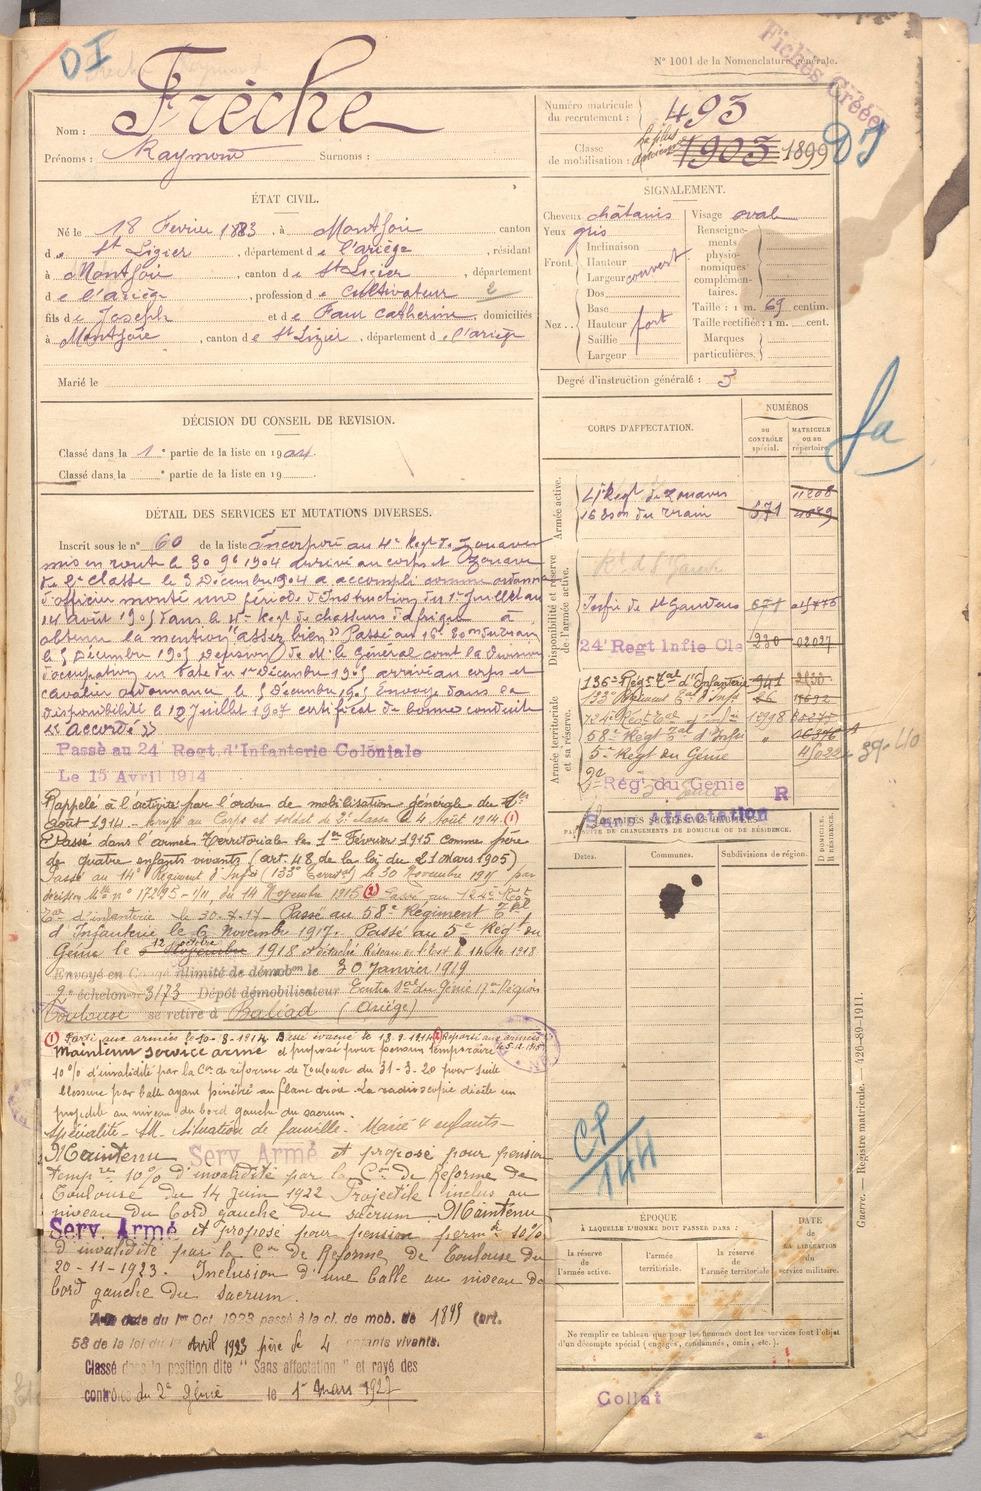 DI
N° 1001 de la Nomenclature générale.
Fiches Créées
Nom : Frèche
Prénoms : Raymond Surnoms :
Numéro matricule du recrutement : 493
Classe de mobilisation : la plus ancienne 1903 1899
DI
ÉTAT CIVIL.
Né le 18 Février 1883, à Montjoie canton
de St Lizier, département de l'ariège, résidant
à Montjoie, canton de St Lizier, département
de l'ariège, profession de Cultivateur 2
fils de Joseph et de Faur Catherine domiciliés
à Montjoie, canton de St Lizier, département de l'ariège
Marié le
SIGNALEMENT.
Cheveux châtains
Yeux gris
Front. Inclinaison
Hauteur
Largeur couvert
Nez. Dos
Base
Hauteur fort
Saillie
Largeur
Visage oval
Renseignements physionomiques complémentaires.
Taille : 1 m. 69 centim.
Taille rectifiée : 1 m. cent.
Marques particulières.
Degré d'instruction générale : 3
DÉCISION DU CONSEIL DE REVISION.
Classé dans la 1e partie de la liste en 1904.
Classé dans la e partie de la liste en 19
DÉTAIL DES SERVICES ET MUTATIONS DIVERSES.
Inscrit sous le n° 60 de la liste Incorporé au 4e Regt de Zouaves
mis en route le 30 9bre 1904 arrivé au corps et Zouave
de 2e classe le 3 Décembre 1904 a accompli comme ordonnance
d'officier monté une période d'instruction du 1er Juillet au
14 août 1905 dans le 4e Regt de chasseurs d'afrique a
obtenu la mention "assez bien" Passé au 16e Eon du train
le 5 Décembre 1905 Decision de M. le Général comt la Division
d'occupation en date du 1er Décembre 1905 arrivé au corps et
cavalier ordonnance le 5 Décembre 1905 Envoyé dans sa
disponibilité le 12 Juillet 1907 certificat de bonne conduite
"accordé"
Passé au 24e Regt. d'Infanterie Coloniale
Le 15 Avril 1914
Rappelé à l'activité par l'ordre de mobilisation générale du 1er
août 1914 - Arrivé au Corps et soldat de 2e classe le 4 août 1914. (1)
Passé dans l'armée Territoriale le 1er Février 1915 comme père
de quatre enfants vivants (art. 48 de la loi du 21 Mars 1905)
Passé au 14e Régiment d'Infie (133e Territ) le 30 Novembre 1915 par
décision Mlle n° 17293 - 1/11, du 14 Novembre 1915 (2) Passé au 124e Regt
Tal d'infanterie le 30.7.17 - Passé au 58e Régiment Tal
d'Infanterie le 6 Novembre 1917. Passé au 5e Régt du
Génie le 12 octobre 1918 et détaché Réseau de l'Est le 14 10 1918
Envoyé en Congé illimité de démobon le 30 Janvier 1919
2e échelon n° 3173 Dépôt démobilisateur Centre Sal du Génie 17e Région
Toulouse se retire à Baliad (Ariège)
(1) Parti aux armées le 10-8-1914 Blessé évacué le 18.9.1914 (2) Reparti aux armées
le 5-12-1915
Maintenu service armé et proposé pour pension temporaire
10 % d'invalidité par la Con de réforme de Toulouse du 31-3-20 pour suite
blessure par balle ayant pénétré au flanc droit. La radioscopie décèle un
projectile au niveau du bord gauche du sacrum.
Spécialité - SM - Situation de famille - Marié 4 enfants -
Maintenu Serv. Armé et proposé pour pension
tempre 10% d'invalidité par la Con de Réforme de
Toulouse du 14 Juin 1922 Projectile inclus au
niveau du bord gauche du sacrum. Maintenu
Serv. Armé et proposé pour pension permte 10%
d'invalidité par la Con de Réforme de Toulouse du
20-11-1923. Inclusion d'une balle au niveau du
bord gauche du sacrum.
A la date du 1er Oct 1923 passé à la cl. de mob. de 1899 (art.
58 de la loi du 1er Avril 1923 père de 4 enfants vivants.
Classé dans la position dite "Sans affectation" et rayé des
contrôles du 2e Génie le 1er Mars 1927
CORPS D'AFFECTATION.
NUMÉROS
DU CONTRÔLE spécial.
MATRICULE ou au répertoire.
Armée active.
4e Regt de Zouaves 11208
16 Eson du train 571 4849
Disponibilité et réserve de l'armée active.
Rt de St Gaudens
Infie de St Gaudens 671
24e Regt Infie Cle 230 02027
Armée territoriale et sa réserve.
136e Régt Tal d'Infanterie 941
133e Régiment Tal d'Infie 26
124e Régt Tal d'Infie 1298
58e Régt Tal d'Infie "
5e Régt du Génie 39-40
2e Rég. du Génie R
Sans Affectation
fa
PAR SUITE DE CHANGEMENTS DE DOMICILE OU DE RÉSIDENCE.
Dates. Communes. Subdivisions de région. D DOMICILE. R RÉSIDENCE.
CP
144
ÉPOQUE
À LAQUELLE L'HOMME DOIT PASSER DANS :
la réserve de l'armée active.
l'armée territoriale.
la réserve de l'armée territoriale
DATE
DE LA LIBÉRATION
du
service militaire.
Ne remplir ce tableau que pour les hommes dont les services font l'objet
d'un décompte spécial (engagés, condamnés, omis, etc.).
Collat
Guerre. — Registre matricule. — 426-89-1911.